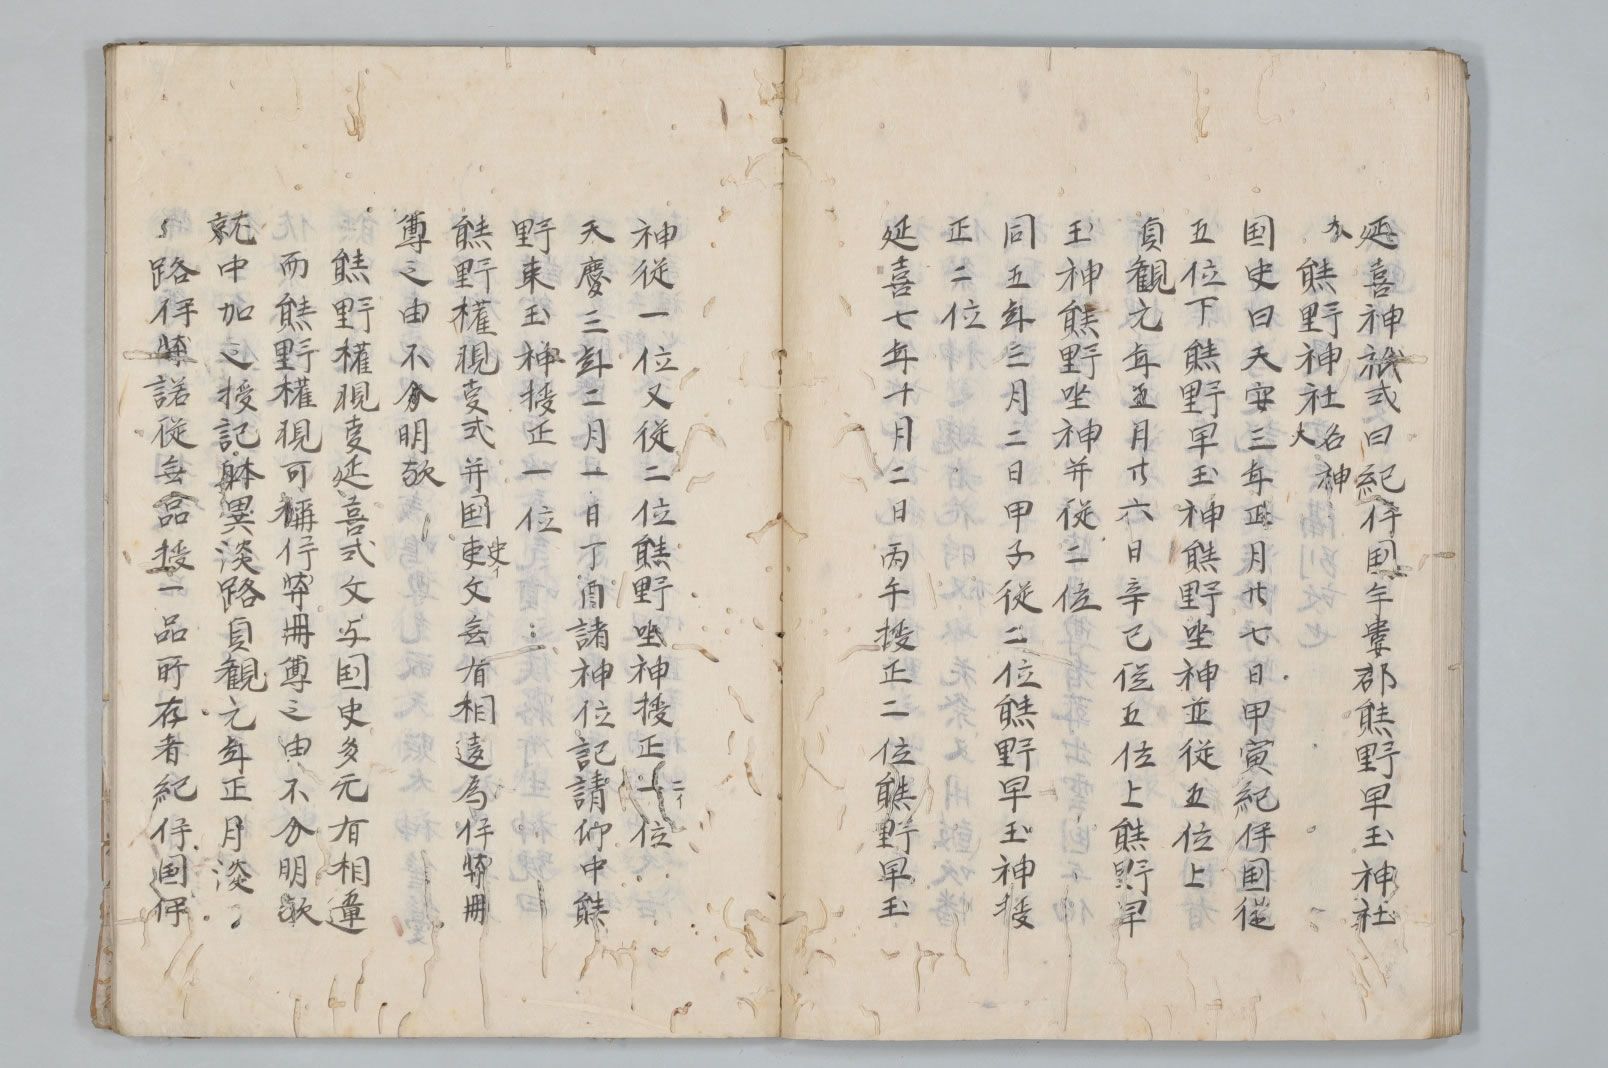 延喜神祇式曰紀伊国牟婁郡熊野早玉神社
大
熊野神社 名神大
国史曰天安三年正月廿七日甲寅紀伊国従
五位下熊野早玉神熊野坐神並従五位上
貞観元年五月廿六日辛巳従五位上熊野早
玉神熊野坐神并従二位
同五年三月二日甲子従二位熊野早玉神授
正二位
延喜七年十月二日丙午授正二位熊野早玉
神従一位又従二位熊野坐神授正一位 二イ
天慶三年二月一日丁酉諸神位記請仰中熊
野東玉神授正一位
熊野権現夏式并国吏文無有相違為伊弉冊 史イ
尊之由不分明歟
熊野権現夏延喜式文与国史多元有相違
而熊野権現可稱伊弉冊尊之由不分明歟
就中加之授記躰異淡路貞観元年正月淡
路伊弉諾従無品授一品所存者紀伊国伊